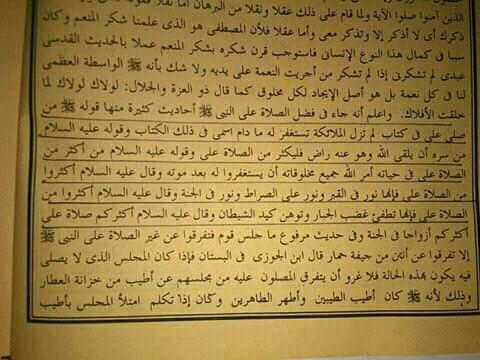 الذين آمنوا صلوا الآية ولما قام على ذلك عقلا ونقلا من البرهان أما نقلا
ذكرك أى لا أذكر إلا وتذكر معى وأما عقلا فلأن المصطفى هو الذى علمنا شكر المنعم وكان
سببا فى كمال هذا النوع الإنسانى فاستوجب قرن شكره بشكر المنعم عملا بالحديث القدسى
عبدى لم تشكرنى إذا لم تشكر من أجريت النعمة على يديه ولا شك بأنه ﷺ الواسطة العظمى
لنا فى كل نعمة بل هو أصل الإيجاد لكل مخلوق كما قال ذو العزة والجلال: لولاك لولاك لما
خلقت الأفلاك. واعلم أنه جاء فى فضل الصلاة على النبى ﷺ أحاديث كثيرة منها قوله ﷺ من
صلى على فى كتاب لم تزل الملائكة تستغفر له ما دام اسمى فى ذلك الكتاب وقوله عليه السلام
من سره أن يلقى الله وهو عنه راض فليكثر من الصلاة على وقوله عليه السلام من أكثر من
الصلاة على فى حياته أمر الله جميع مخلوقاته أن يستغفروا له بعد موته وقال عليه السلام أكثروا
من الصلاة على فإنها نور فى القبر ونور على الصراط ونور فى الجنة وقال عليه السلام أكثروا من
الصلاة على فإنها تطفئ غضب الجبار وتوهن كيد الشيطان وقال عليه السلام أكثركم صلاة على
أكثركم أزواجا فى الجنة وفى حديث مرفوع ما جلس قوم فتفرقوا عن غير الصلاة على النبى ﷺ
إلا تفرقوا عن أنتن من جيفة حمار قال ابن الجوزى فى البستان فإذا كان المجلس الذى لا يصلى
فيه يكون بهذه الحالة فلا غرو أن يتفرق المصلون عليه من مجلسهم عن أطيب من خزانة العطار
وذلك لأنه ﷺ كان أطيب الطيبين وأطهر الطاهرين وكان إذا تكلم امتلأ المجلس بأطيب